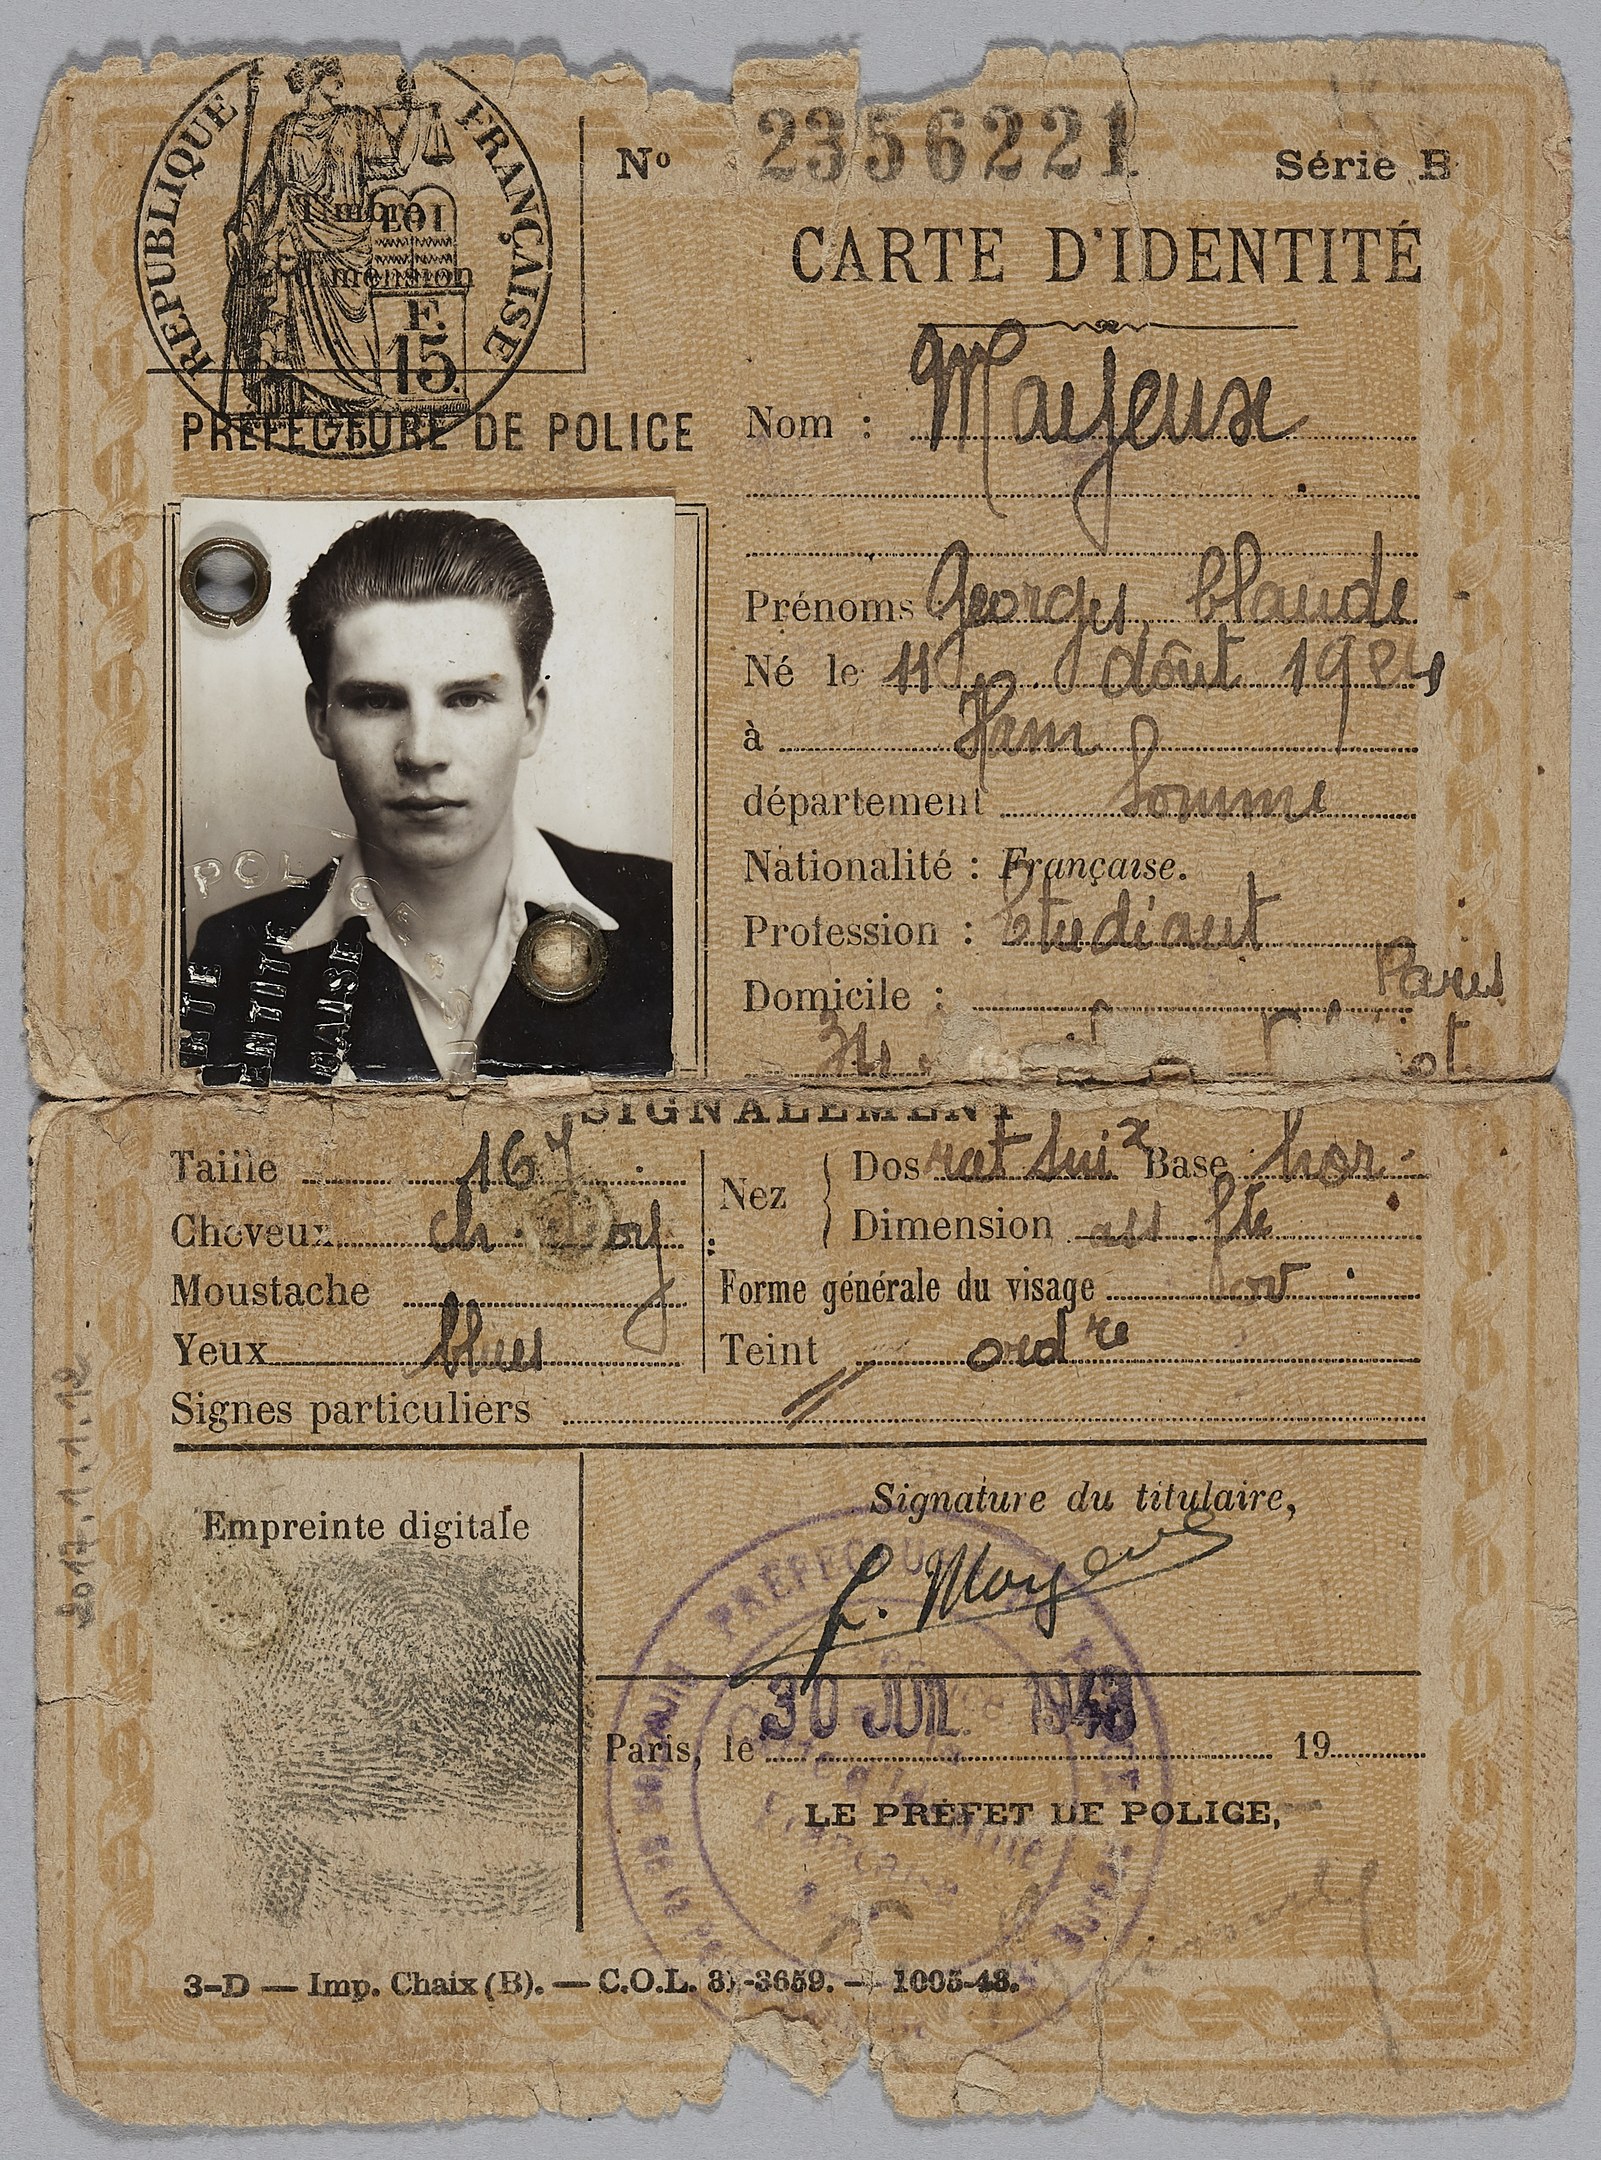 REPUBLIQUE FRANÇAISE
Timbre
LOI
de dimension
F.
15
75
Nº 2356221 Série B
CARTE D'IDENTITÉ
PRÉFECTURE DE POLICE
Nom : Mayeux
Prénoms Georges, Claude
Né le 11 Août 1924
à Ham
département Somme
Nationalité : Française.
Profession : Etudiant
Domicile : Paris
POLICE
SIGNALEMENT
Taille 167
Cheveux ch.
Moustache
Yeux bleus
Nez
Dos rect Base hor
Dimension
Forme générale du visage ov
Teint ord re
Signes particuliers //
Empreinte digitale
Signature du titulaire,
G. Mayeux
PREFECTURE
Paris, le 30 JUIL 1943 19
LE PRÉFET DE POLICE,
3-D — Imp. Chaix (B). — C.O.L. 31-3659. — 1005-43.
2017.1.1.12